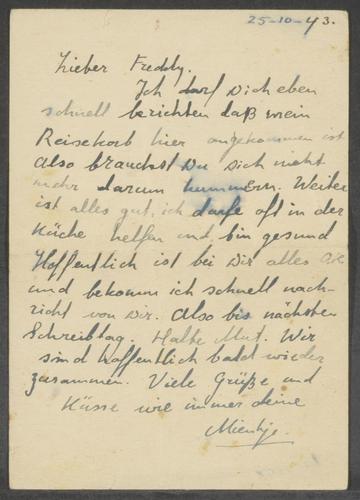 25-10-43.
Lieber Freddy.
Ich darf Dich eben
schnell berichten daß mein
Reisekorb hier angekommen ist
also brauchst Du Dich nicht
mehr darum kummern. Weiter
ist alles gut, ich darfe oft in der
Küche helfen und bin gesund
Hoffentlich ist bei Dir alles ok
und bekomm ich schnell nach-
richt von Dir. Also bis nächsten
Schreibtag. Halte Mut. Wir
sind hoffentlich bald wieder
zusammen. Viele Grüße und
Küsse wie immer deine
Mientje.